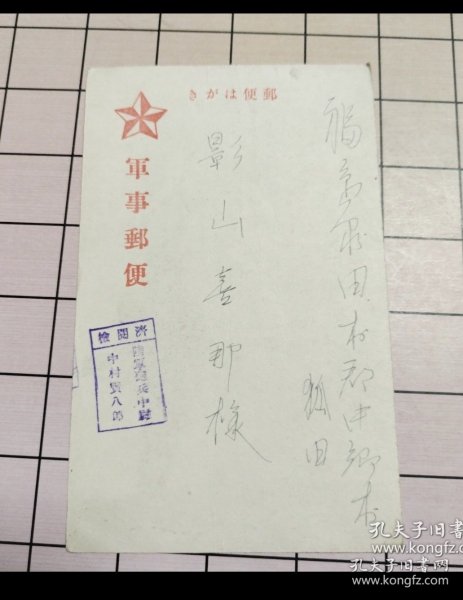 郵便はがき
福島県田村郡中郷村
狐田
影山喜那様
軍事郵便
検閲済
中尉
中村賢八郎
孔夫子旧书网
www.kongfz.com
孔夫子旧书网
www.kongfz.com